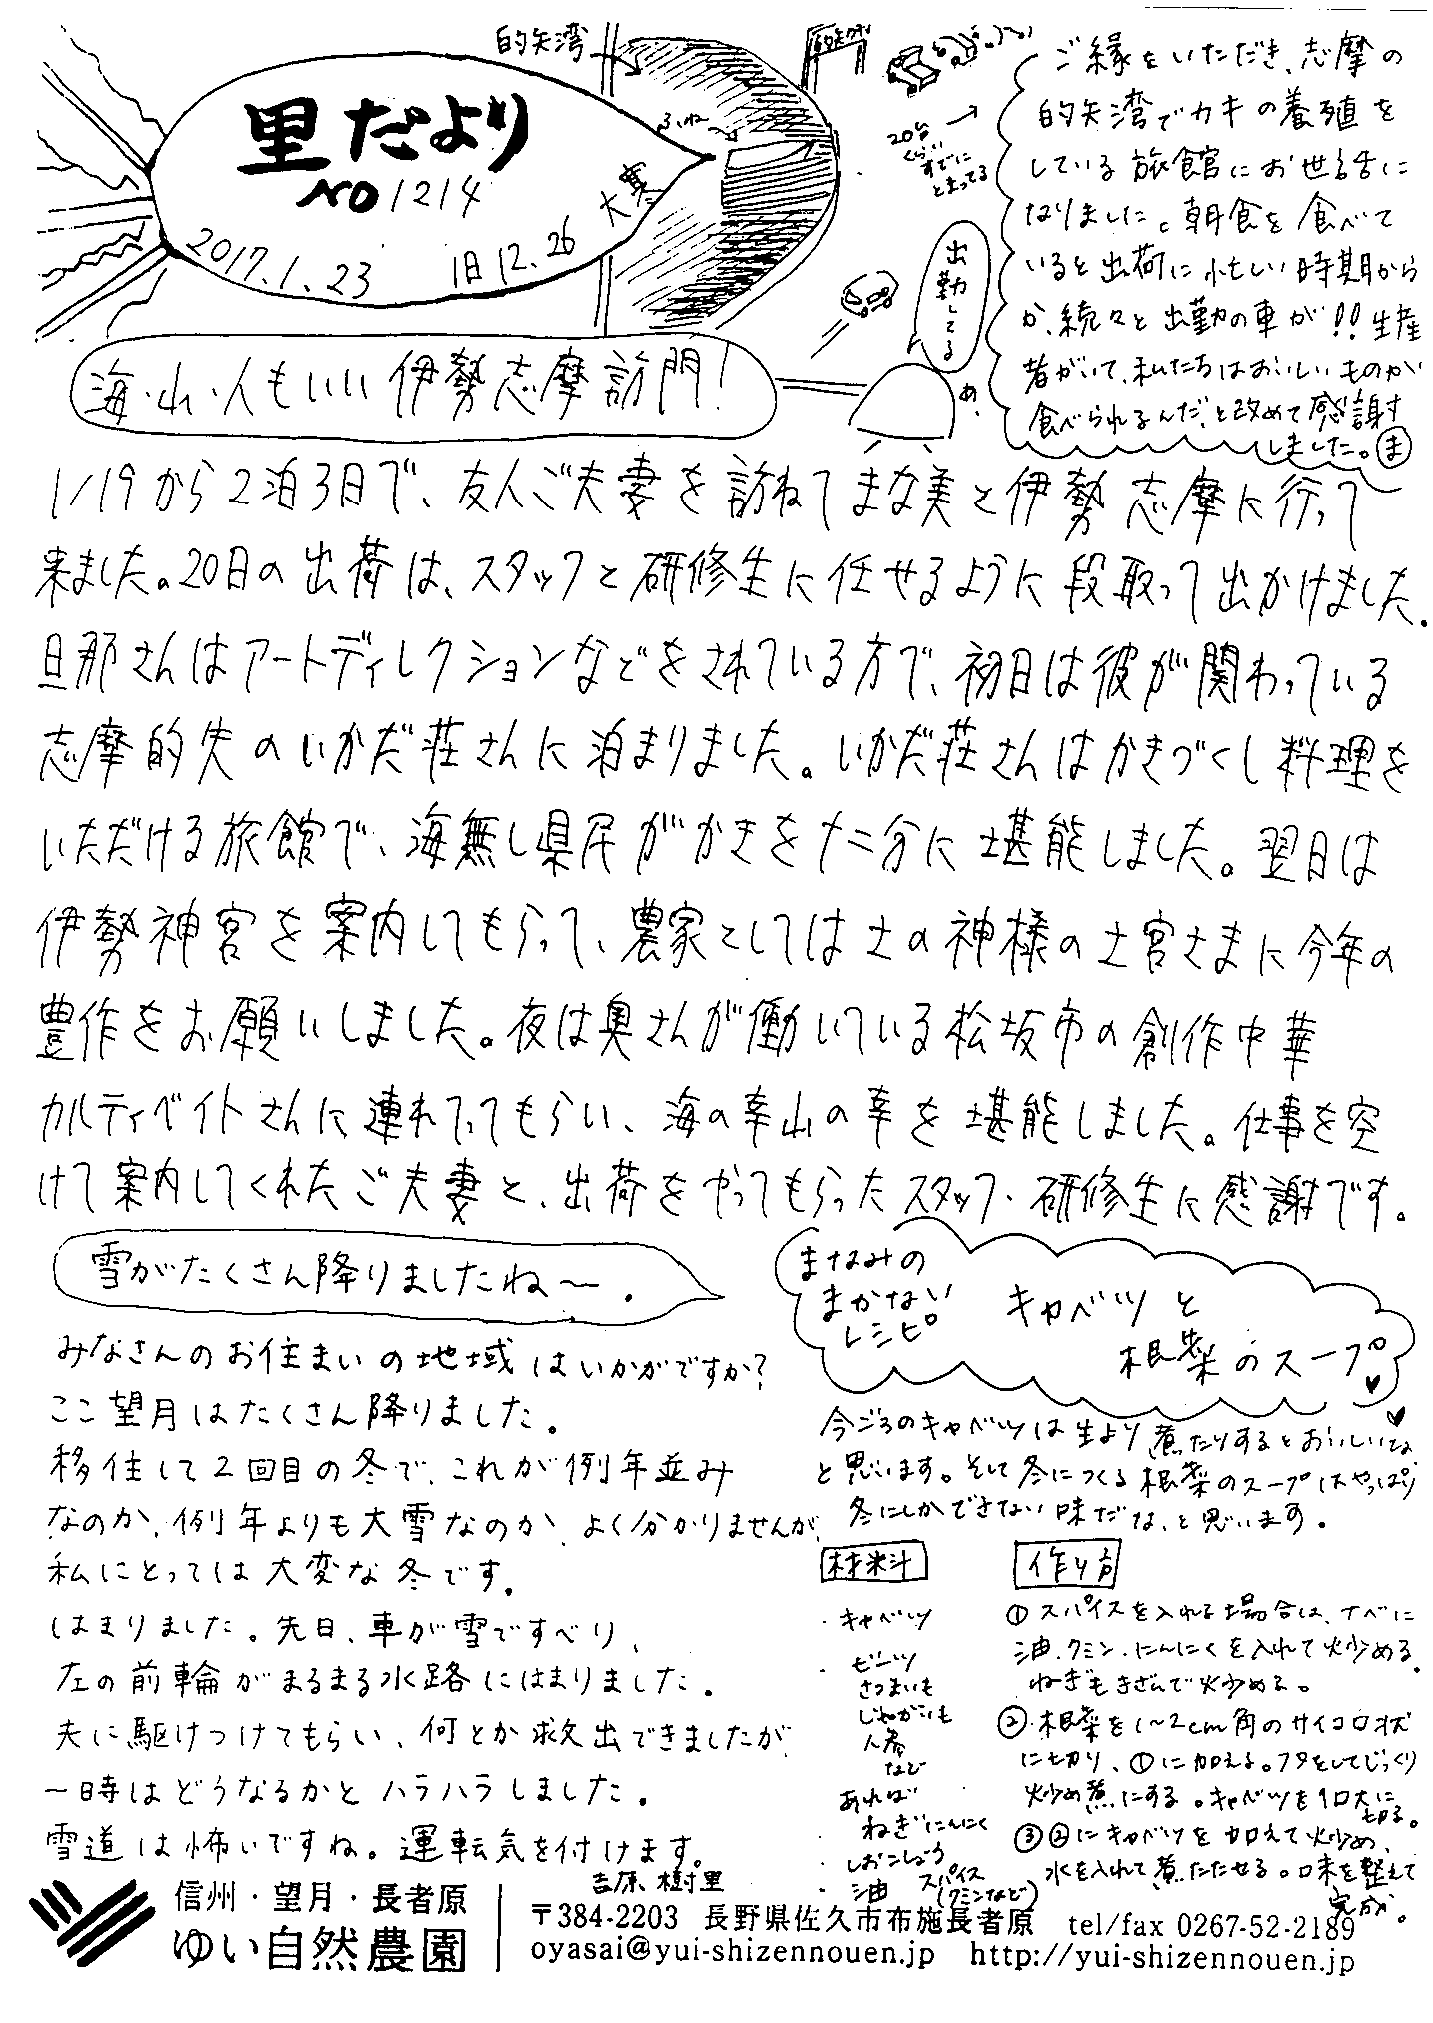 里だより
NO1214
2017.1.23 旧12.26 大寒
的矢湾
ふね
20台
くらい
すでに
とまってる
出勤してる
あ、
ご縁をいただき、志摩の
的矢湾でカキの養殖を
している旅館にお世話に
なりました。朝食を食べて
いると出荷に忙しい時期から
か、続々と出勤の車が!!生産
者がいて、私たちはおいしいものが
食べられるんだ、と改めて感謝す
しました。ま
海・山・人もいい伊勢志摩訪問!
1/19から2泊3日で、友人ご夫妻を訪ねてまな美と伊勢志摩に行って
来ました。20日の出荷は、スタッフと研修生に任せるように段取って出かけました。
旦那さんはアートディレクションなどをされている方で、初日は彼が関わっている
志摩的矢のいかだ荘さんに泊まりました。いかだ荘さんはかきづくし料理を
いただける旅館で、海無し県民がかきを十二分に堪能しました。翌日は
伊勢神宮を案内してもらって、農家としては土の神様の土宮さまに今年の
豊作をお願いしました。夜は奥さんが働いている松坂市の創作中華
カルティベイトさんに連れてってもらい、海の幸山の幸を堪能しました。仕事を空
けて案内してくれたご夫妻と、出荷をやってもらったスタッフ・研修生に感謝です。
雪がたくさん降りましたね〜。
みなさんのお住まいの地域はいかがですか?
ここ望月はたくさん降りました。
移住して2回目の冬で、これが例年並み
なのか、例年よりも大雪なのか、よく分かりませんが、
私にとっては大変な冬です。
はまりました。先日、車が雪ですべり、
左の前輪がまるまる水路にはまりました。
夫に駆けつけてもらい、何とか救出できましたが、
一時はどうなるかとハラハラしました。
雪道は怖いですね。運転気を付けます。
吉原 樹里
まなみの
まかない
レシピ
キャベツと
根菜のスープ
今ごろのキャベツは生より煮たりするとおいしいな、
と思います。そして冬につくる根菜のスープはやっぱり
冬にしかできない味だな、と思います。
材料
・キャベツ
・ビーツ
さつまいも
じゃがいも
人参
など
あれば
ねぎにんにく
・しおこしょう
・油 スパイス
(クミンなど)
作り方
①スパイスを入れる場合は、ナベに
油・クミン・にんにくを入れて炒める。
ねぎもきざんで炒める。
②・根菜を1〜2cm角のサイコロ状
に切り、①に加える。フタをしてじっくり
炒め煮にする。キャベツを1口大に
切る。
③②にキャベツを加えて炒め、
水を入れて煮たたせる。味を整えて
完成。
信州・望月・長者原
ゆい自然農園
〒384-2203 長野県佐久市布施長者原 tel/fax 0267-52-2189
oyasai@yui-shizennouen.jp http://yui-shizennouen.jp